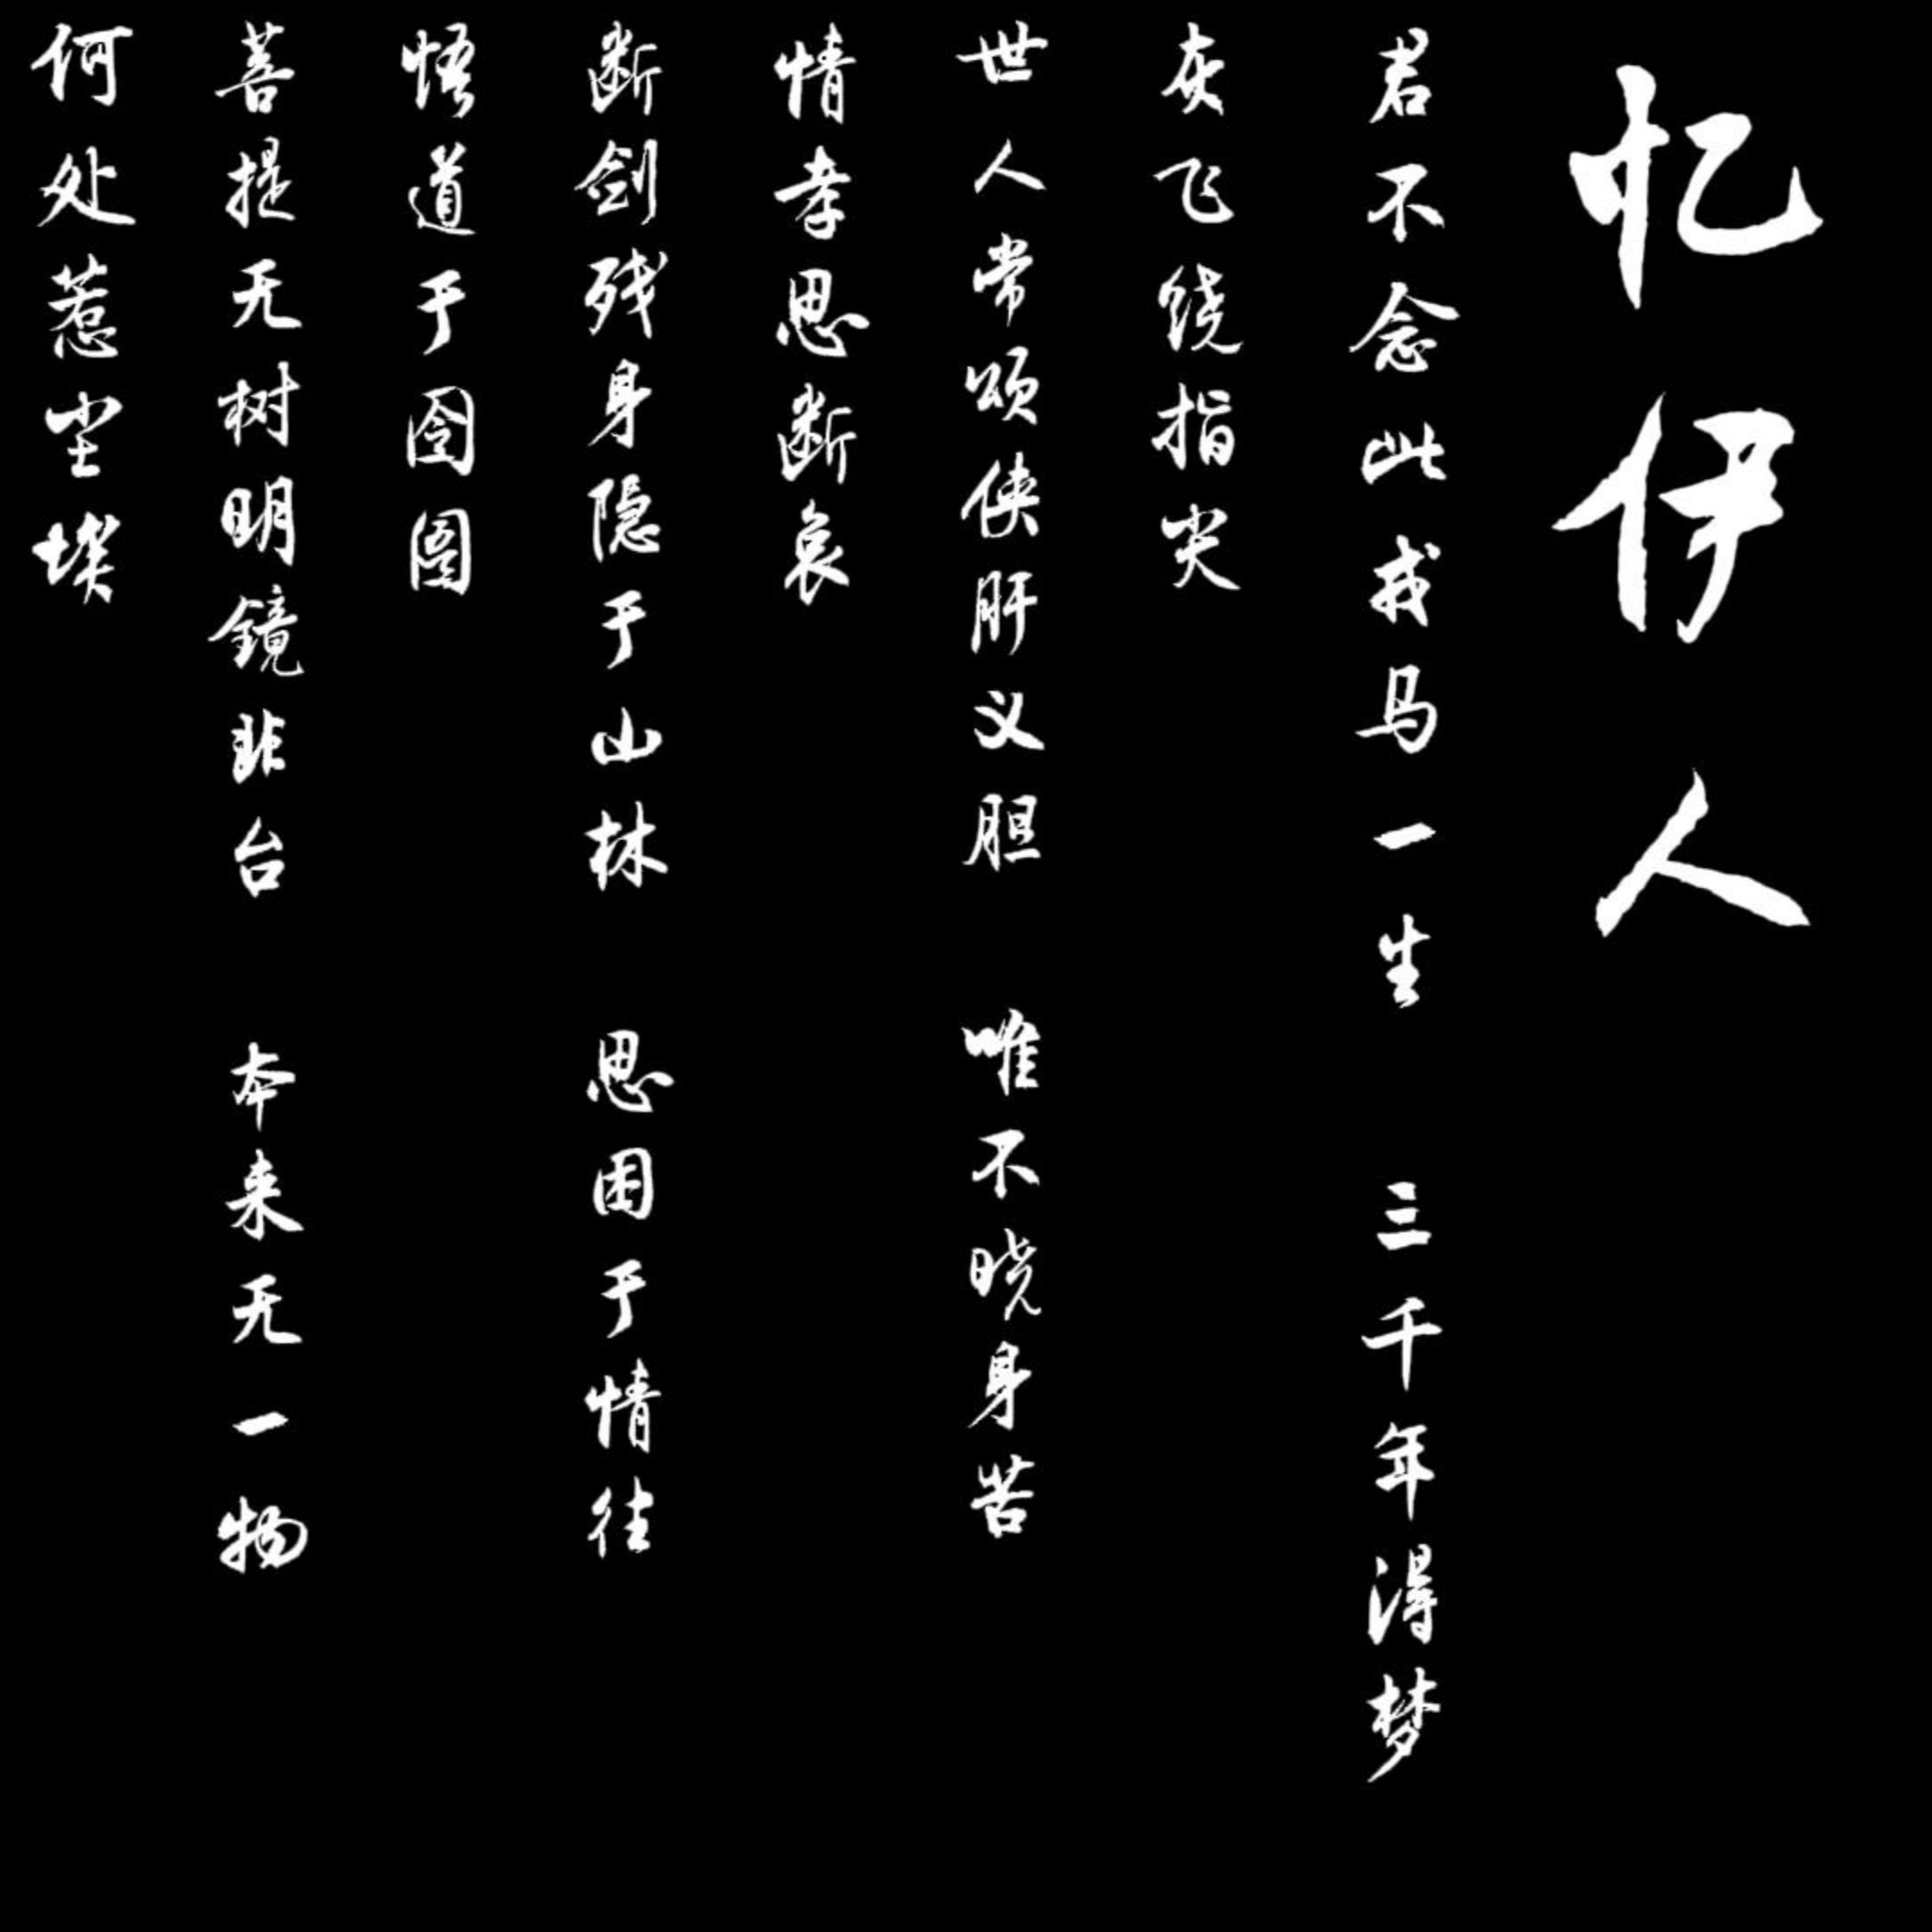 忆伊人
君不念此戎马一生 三千年浔梦
灰飞绕指尖
世人常颂侠肝义胆 唯不晓身苦
情孝思断哀
断剑残身隐于山林 思困于情往
悟道于囹圄
菩提无树明镜非台 本来无一物
何处惹尘埃